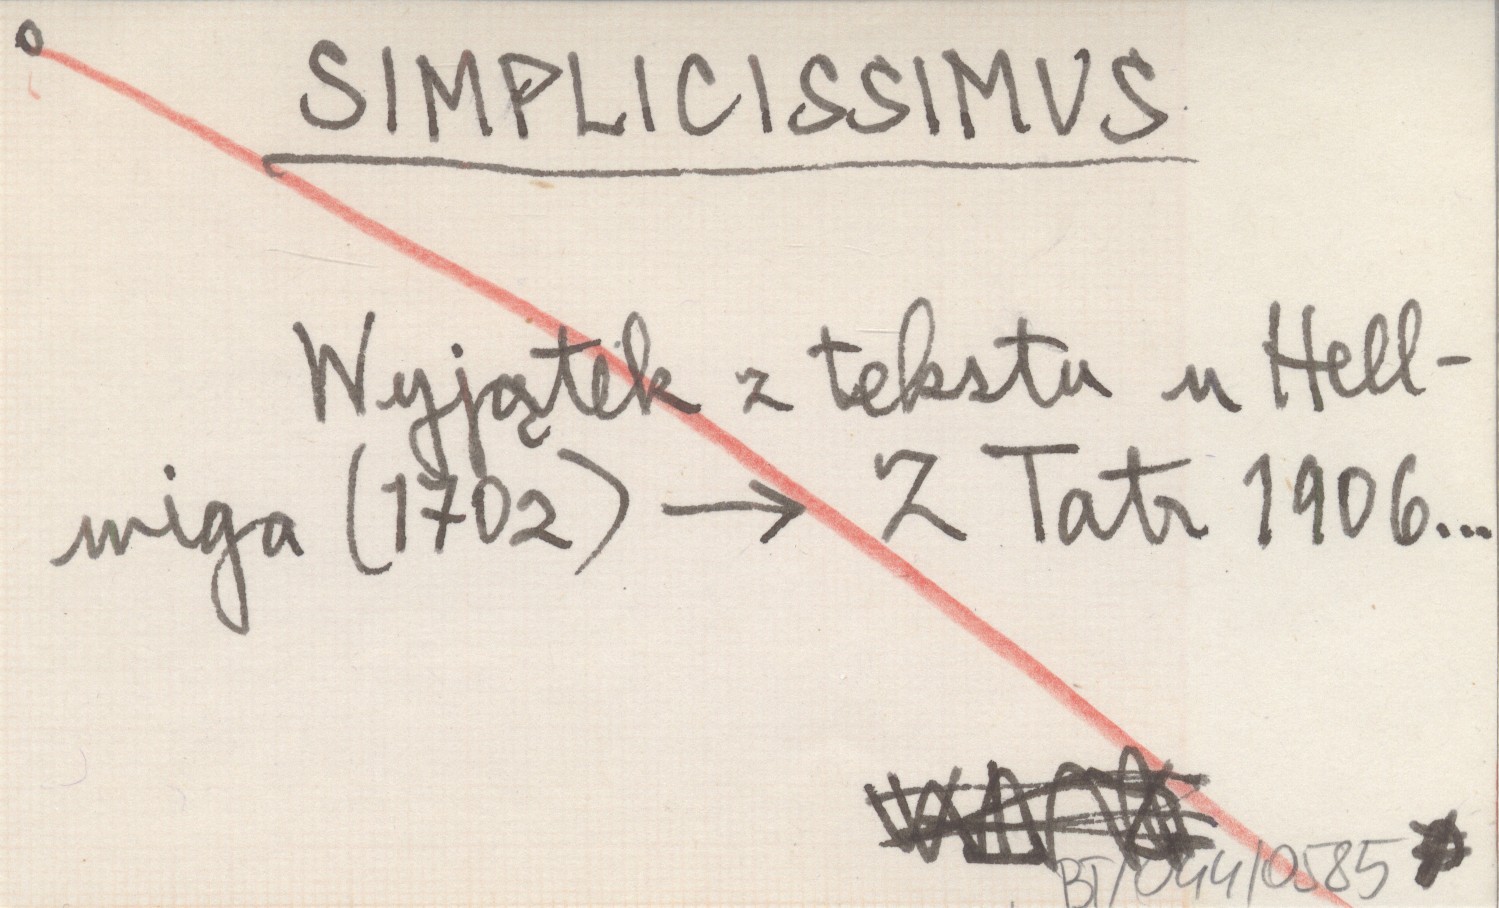 SIMPLICISSIMUS
Wyjątek z tekstu u Hell-
wiga (1702) → Z Tatr 1906...
BT/044/0585